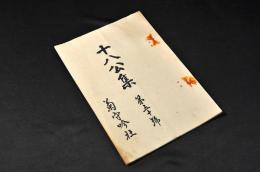 十八公集
第五十號
菊守吟社